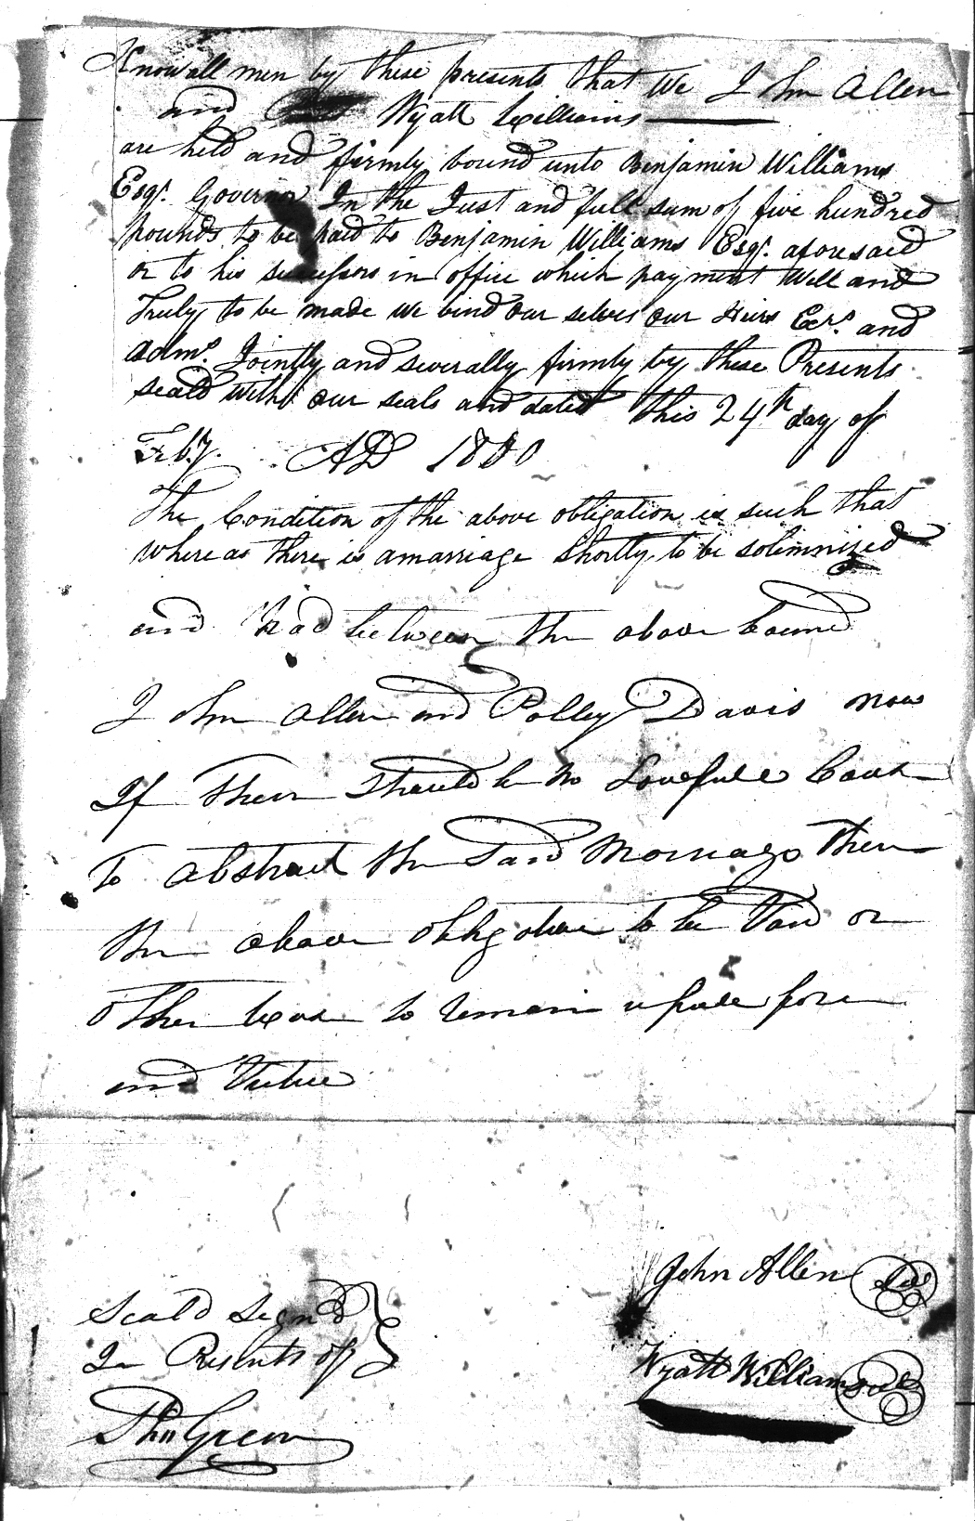 Know all men by these presents that We John Allen
and Wyatt Williams
are held and firmly bound unto Benjamin Williams
Esqr. Governor In the Just and full sum of five hundred
pounds to be paid to Benjamin Williams Esqr. aforesaid
or to his successors in office which payment Well and
Truly to be made We bind our selves our Heirs Ecrs. and
Adms. Jointly and severally firmly by these Presents
seald with our seals and dated this 24th day of
Feby. AD 1800
The Condition of the above obligation is such that
whereas there is a marriage Shortly to be solimnized
and had between the above bound
John Allen and Polley Davis now
If there should be no Lawfull Caus
To abstruct the Said Marriage then
the above obligation to be Void or
other to remain in full force
and Virtue
John Allen Seal
Seald Signd
In Presents of
Wyatt Williams Seal
Thn Green